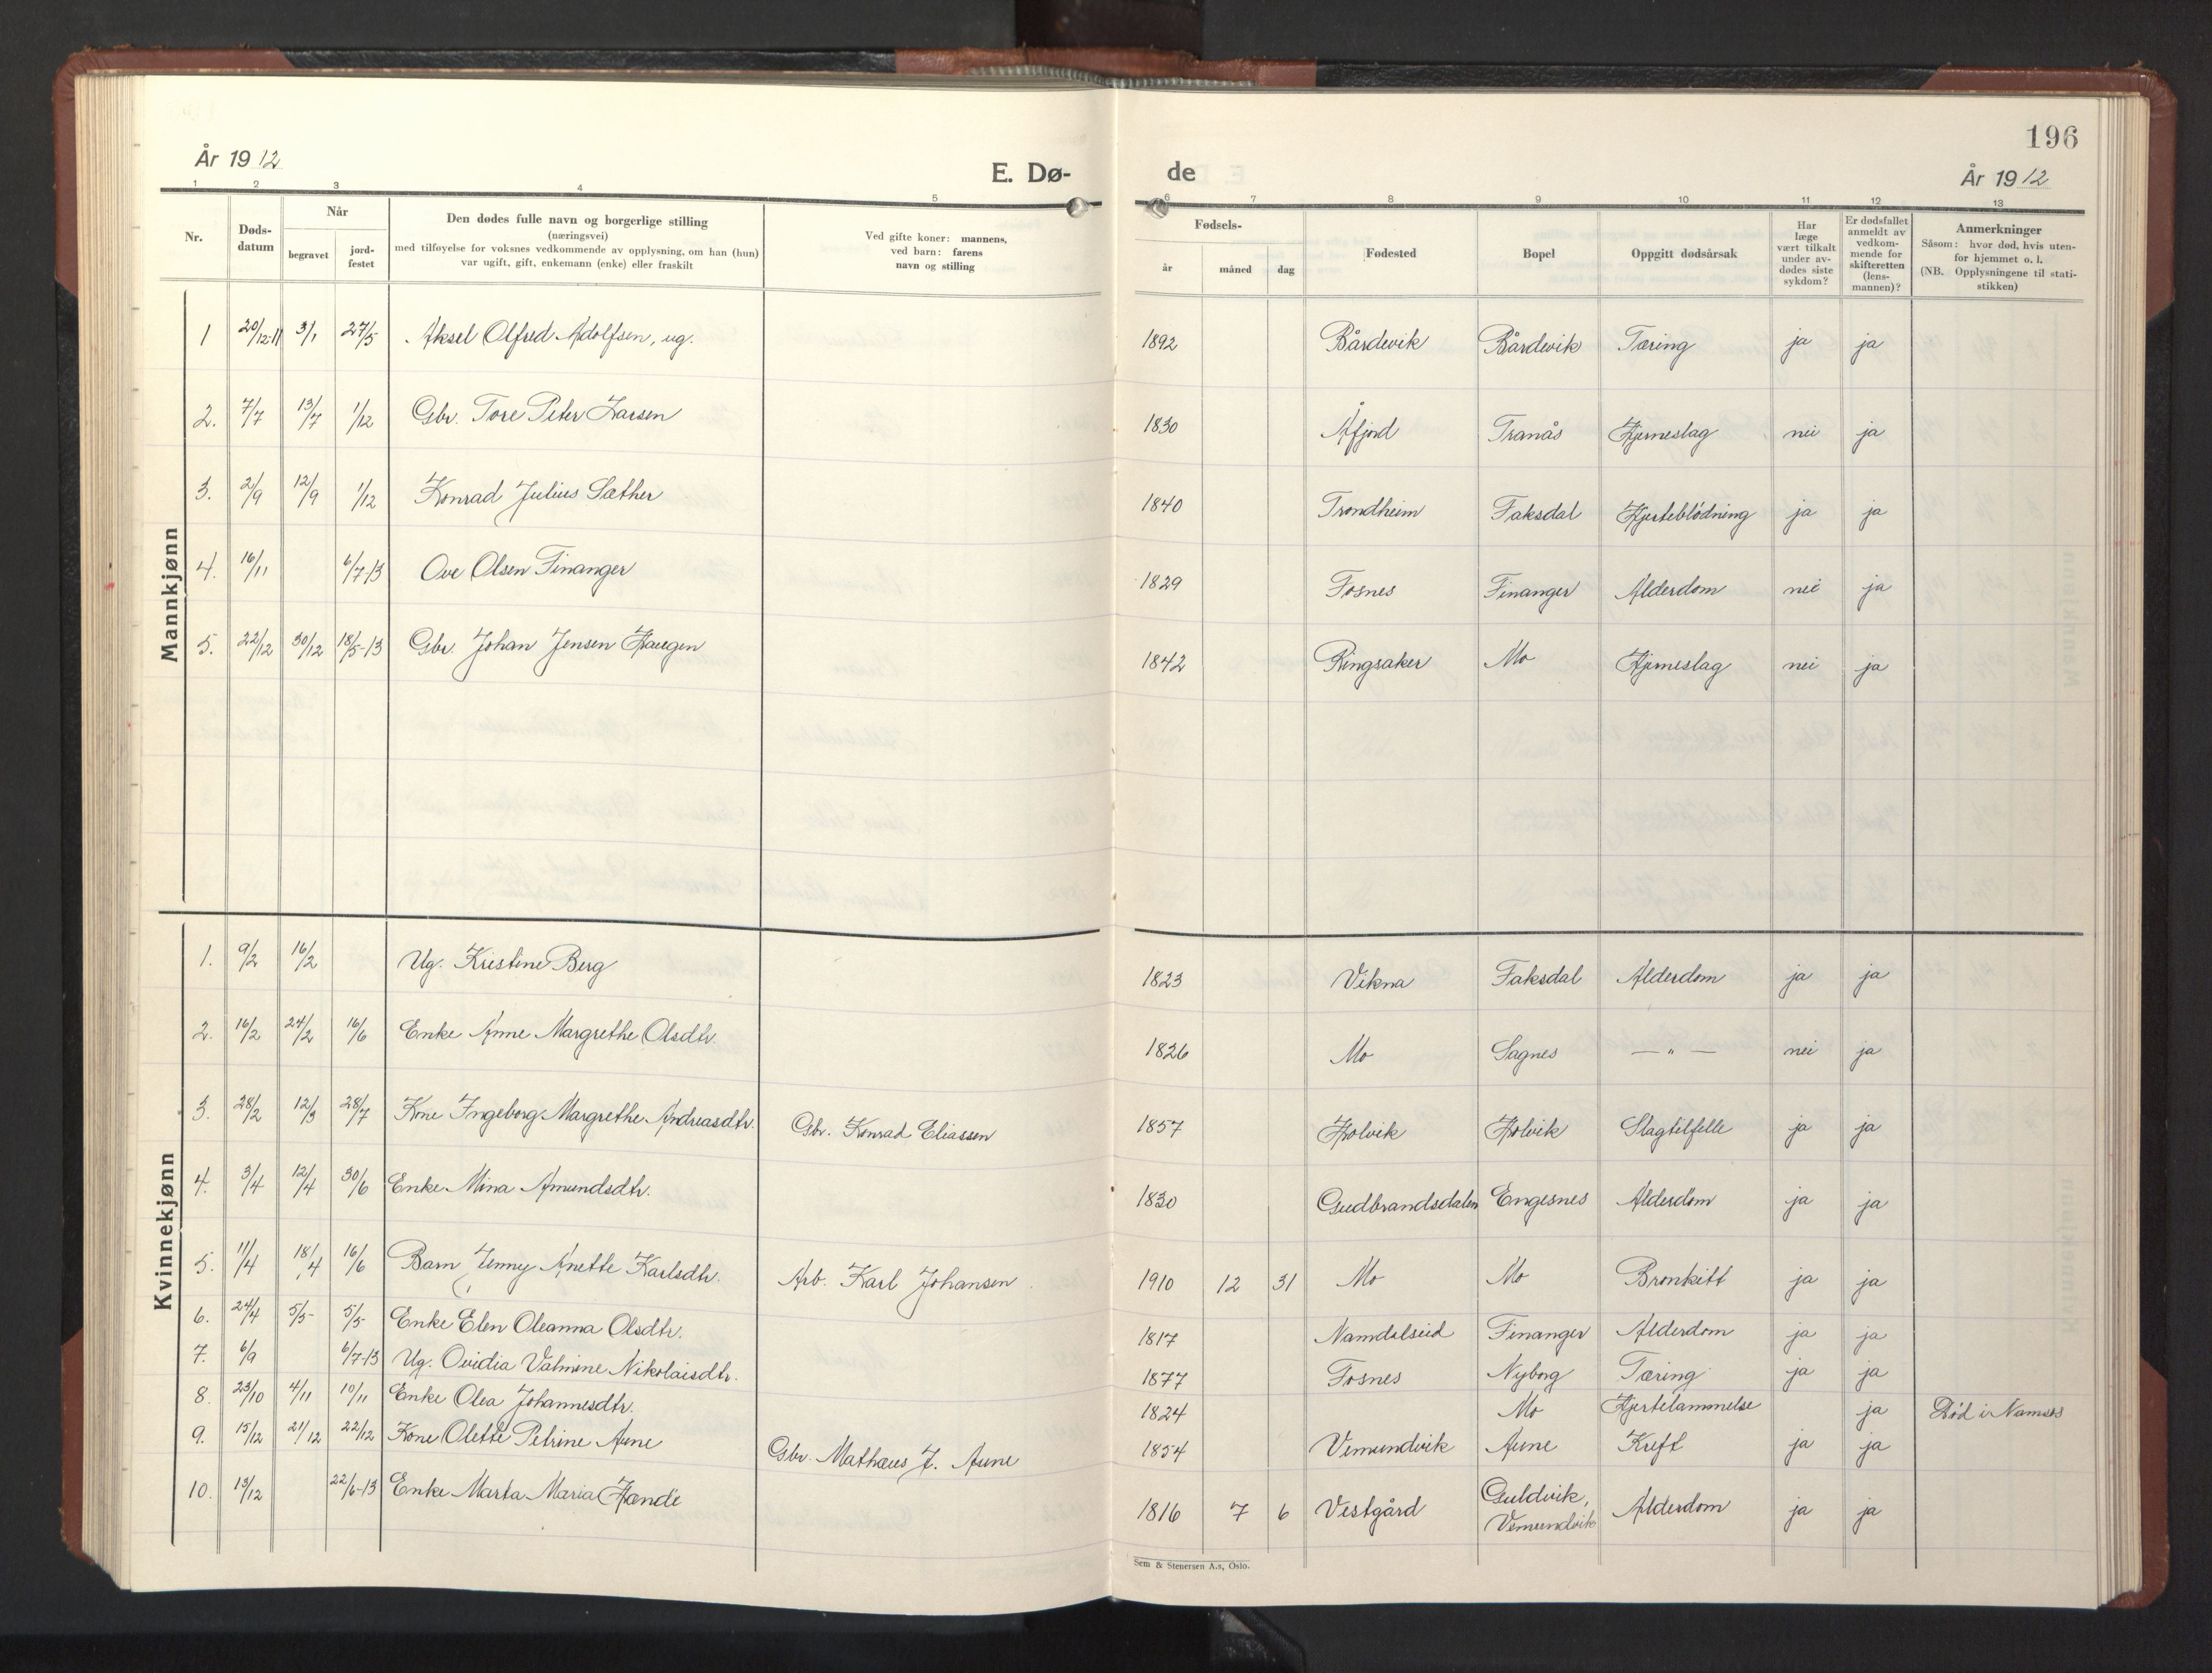 196
År 1912
E. Dø-
de
År 1912
1 2 3 4 5 6 7 8 9 10 11 12 13
Nr.
Døds-
datum
Når
begravet
jord-
festet
Den dødes fulle navn og borgerlige stilling
(næringsvei)
med tilføyelse for voksnes vedkommende av opplysning, om han (hun)
var ugift, gift, enkemann (enke) eller fraskilt
Ved gifte koner: mannens,
ved barn: farens
navn og stilling
Fødsels-
år måned dag
Fødested
Bopel
Oppgitt dødsårsak
Har
læge
vært tilkalt
under av-
dødes siste
sykdom?
Er dødsfallet
anmeldt av
vedkom-
mende for
skifteretten
(lens-
mannen)?
Anmerkninger
Såsom: hvor død, hvis uten-
for hjemmet o. l.
(NB. Opplysningene til stati-
stikken)
Mannkjønn
1 20/12-11 3/1 27/5 Aksel Olfred Adolfsen, ug. 1892 Bårdevik Bårdevik Tæring ja ja
2. 7/7 13/7 1/12 Gbr. Tore Peter Larsen 1830 Åfjord Tranås Hjerneslag nei ja
3. 2/9 12/9 1/12 Konrad Julius Sæther 1840 Trondheim Faksdal Hjerteblödning ja ja
4. 16/11 6/7-13 Ove Olsen Finanger 1829 Fosnes Finanger Alderdom nei ja
5. 22/12 30/12 18/5-13 Gbr. Johan Jensen Haugen 1842 Ringsaker Mo Hjerneslag nei ja
Kvinnekjønn
1. 9/2 16/2 Ug. Kristine Berg 1823 Vikna Faksdal Alderdom ja ja
2. 16/2 24/2 16/6 Enke Anne Margrethe Olsdtr. 1826 Mo Sagnes — " — nei ja
3. 28/2 12/3 28/7 Kone Ingeborg Margrethe Andreasdtr. Gbr. Konrad Eliassen 1857 Holvik Holvik Slagtilfelle ja ja
4. 3/4 12/4 30/6 Enke Mina Amundsdtr. 1830 Gudbrandsdalen Engesnes Alderdom ja ja
5. 11/4 18/4 16/6 Barn Jenny Anette Karlsdtr. Arb. Karl Johansen 1910 12 31 Mo Mo Bronkitt ja ja
6. 24/4 5/5 5/5 Enke Elen Oleanna Olsdtr. 1817 Namdalseid Finanger Alderdom ja ja
7. 6/9 6/7-13 Ug. Ovidia Valmine Nikolaisdtr. 1877 Fosnes Nyborg Tæring ja ja
8. 23/10 4/11 10/11 Enke Olea Johannesdtr. 1824 Mo Hjertelammelse ja Död i Namsos
9. 15/12 21/12 22/12 Kone Olette Petrine Aune Gbr. Mathæus J. Aune 1854 Vemundvik Aune Kreft ja ja
10. 13/12 22/6-13 Enke Marta Maria Hande 1816 7 6 Vestgård Guldvik, Vemundvik Alderdom ja ja
Sem & Stenersen A.s, Oslo.